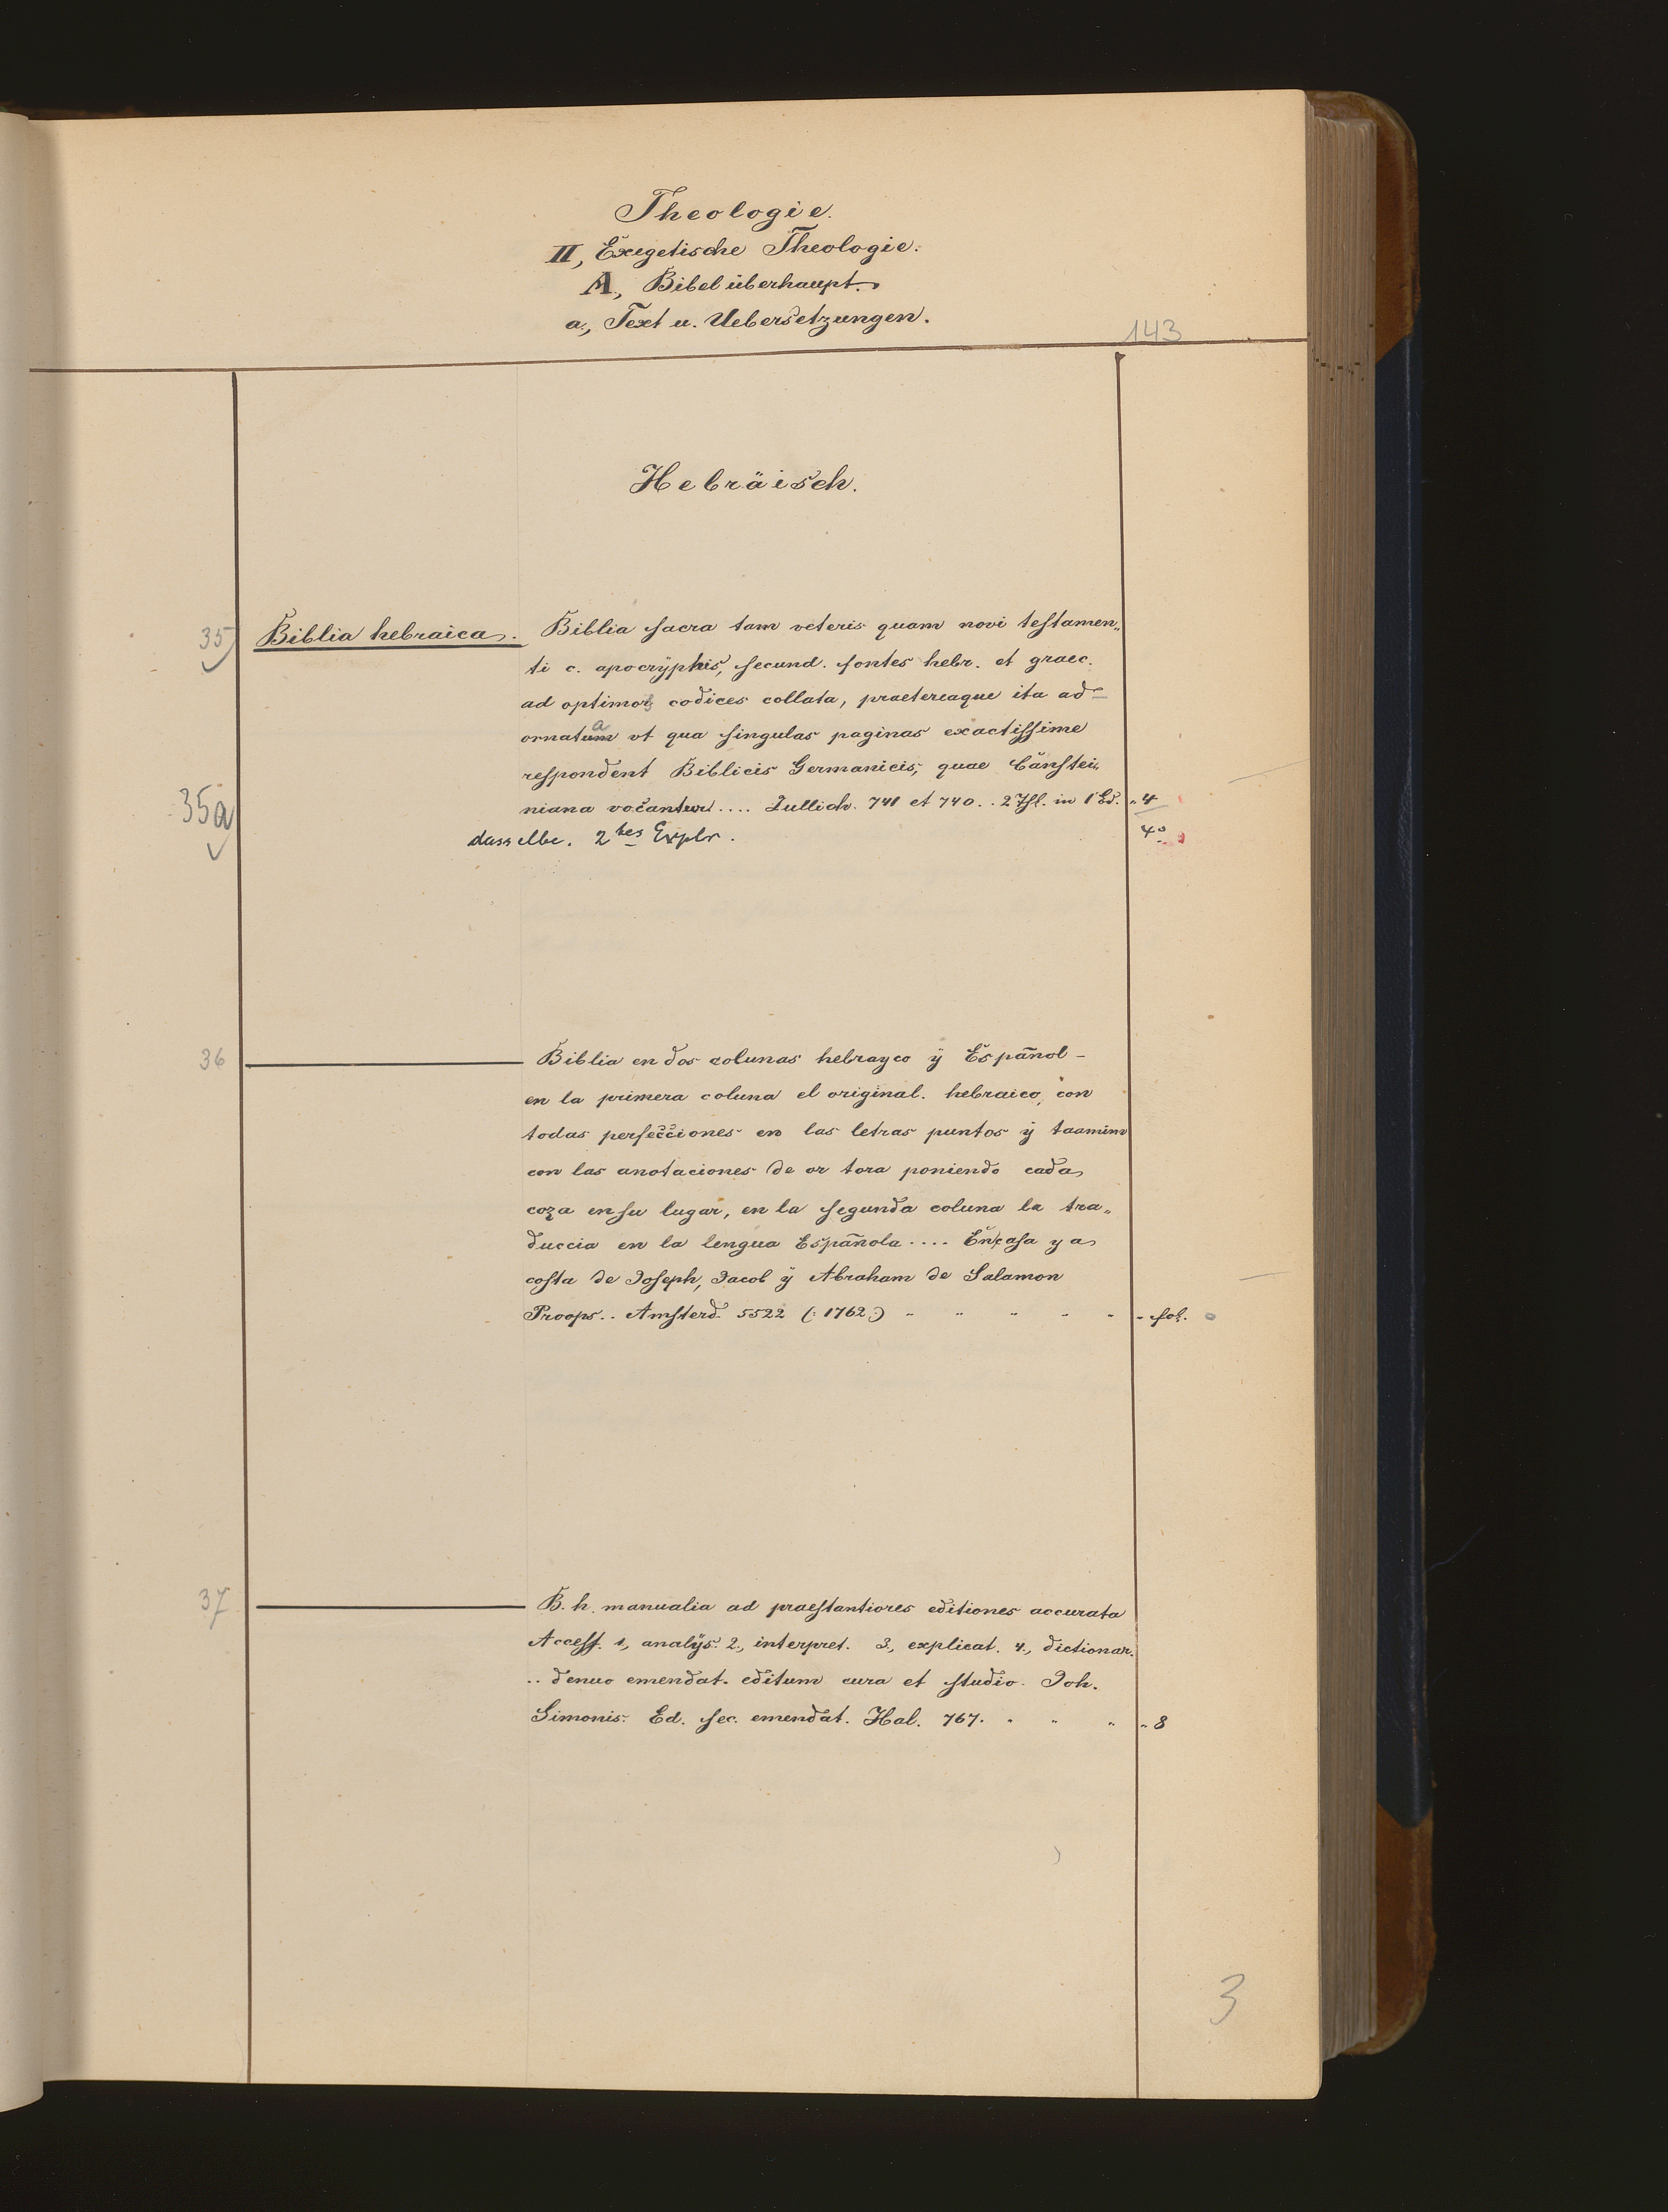 Theologie.
II, Exegetische Theologie.
A., Bibel überhaupt.
a., Text u. Uebersetzungen.
143
Hebräisch.
35
Biblia hebraica. Biblia sacra tam veteris quam novi testamen„
ti c. apocryphis, secund. fontes hebr. et graec.
ad optimos codices collata, praetereaque ita ad-
ornata vt qua singulas paginas exactissime
respondent Biblicis Germanicis, quae Canstei„
niana vocantur.... Zullich. 741 et 740.. 2 Thl. in 1 Bd. „ 4
35a
dasselbe. 2tes Explr. 4°
36
Biblia en dos colunas hebrayco ÿ Español -
en la primera coluna el original. hebraico, con
todas perfecciones en las letras puntos ÿ taamim
con las anotaciones de or tora poniendo cada
coza en su lugar, en la segunda coluna la tra„
duccia en la lengua Española .... En casa y a
costa de Joseph, Jacob ÿ Abraham de Salamon
Proops.. Amsterd. 5522 (:1762:) „ „ „ „ „ „ fol.
37
B. h. manualia ad praestantiores editiones accurata
Access. 1, analÿs. 2., interpret. 3., explicat. 4., dictionar.
.. denuo emendat. editum cura et studio. Joh.
Simonis. Ed. sec. emendat. Hal. 767. „ „ „ „ 8
3